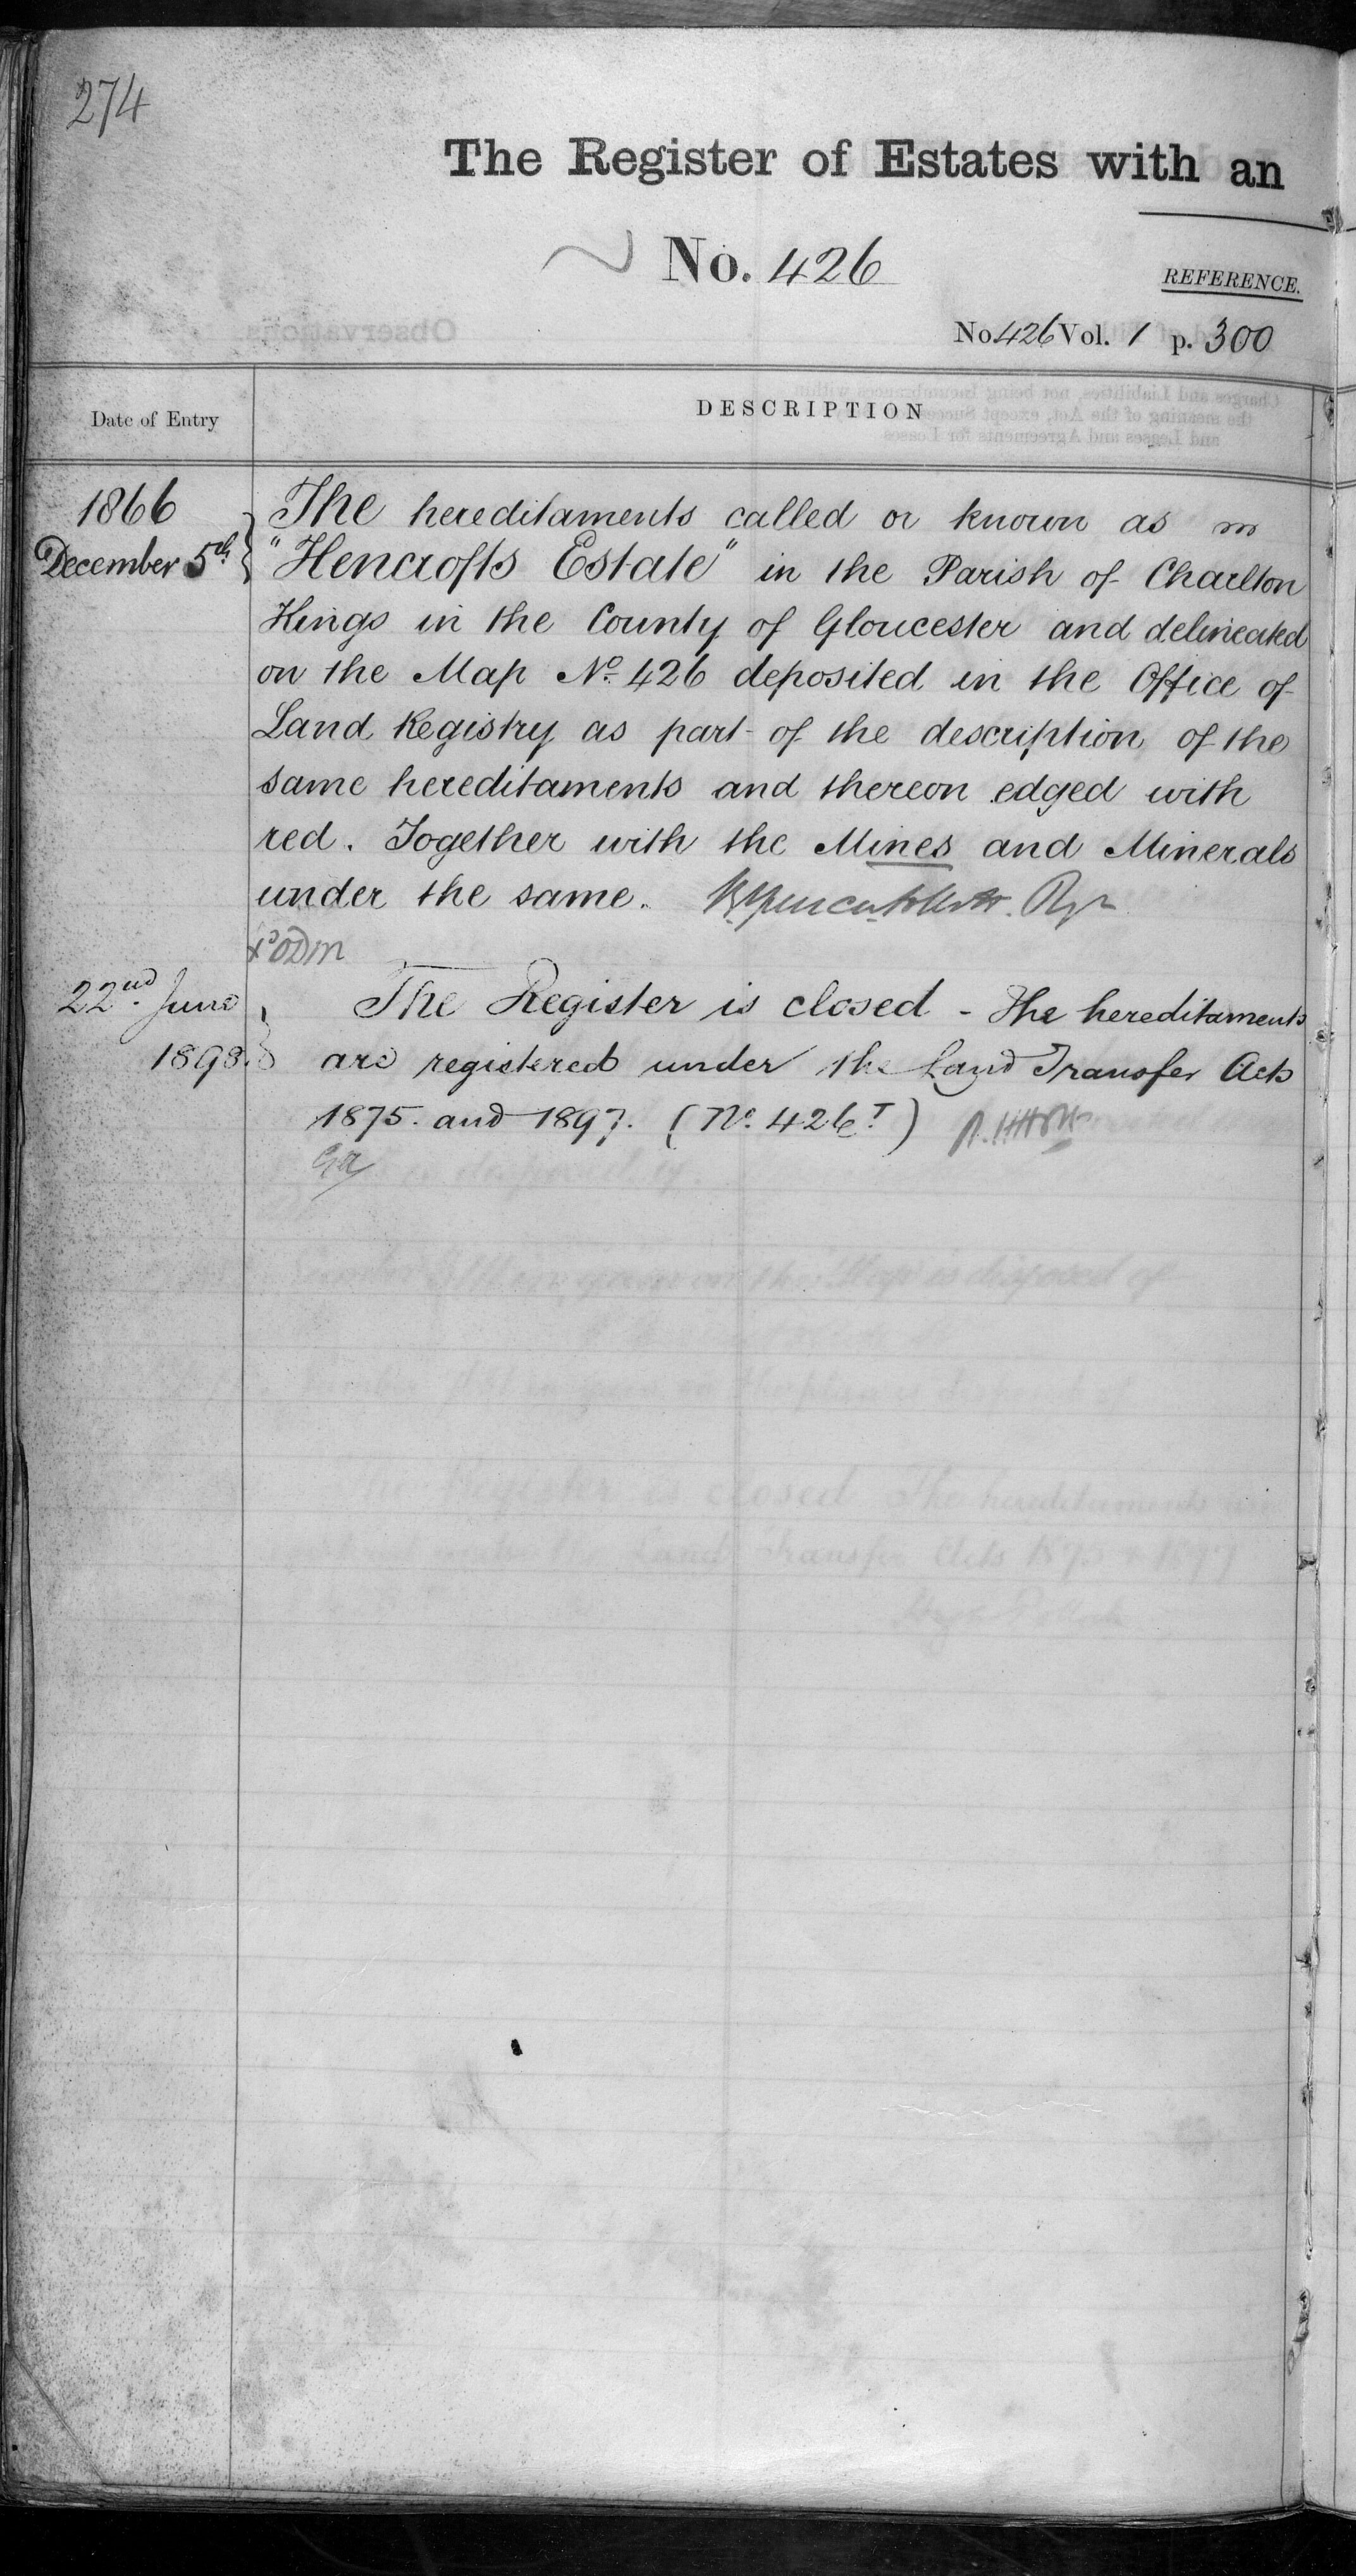 274
The Register of Estates with an
No. 426
REFERENCE.
No 426 Vol. 1 p. 300
Date of Entry
DESCRIPTION
1866
December 5th
The hereditaments called or known as
"Hencrofts Estate" in the Parish of Charlton
Kings in the County of Gloucester and delineated
on the Map No. 426 deposited in the Office of
Land Registry as part of the description of the
same hereditaments and thereon edged with
red. Together with the Mines and Minerals
under the same. Rgr
22nd June
1898.
The Register is closed - The hereditaments
are registered under the Land Transfer Acts
1875. and 1897. (No. 426T)